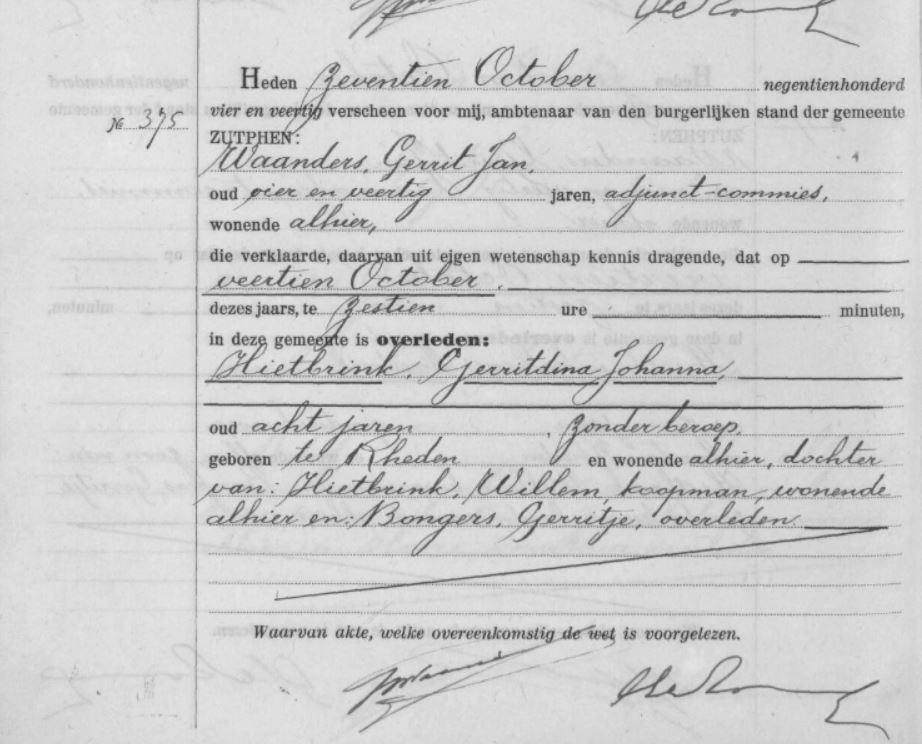 Heden Zeventien October negentienhonderd
vier en veertig verscheen voor mij, ambtenaar van den burgerlijken stand der gemeente
№ 375
ZUTPHEN:
Waanders, Gerrit Jan,
oud vier en veertig jaren, adjunct-commies,
wonende alhier,
die verklaarde, daarvan uit eigen wetenschap kennis dragende, dat op
veertien October
dezes jaars, te Zestien ure minuten,
in deze gemeente is overleden:
Hietbrink, Gerritdina Johanna,
oud acht jaren, zonder beroep,
geboren te Rheden en wonende alhier, dochter
van: Hietbrink, Willem, koopman, wonende
alhier en: Bongers, Gerritje, overleden.
Waarvan akte, welke overeenkomstig de wet is voorgelezen.